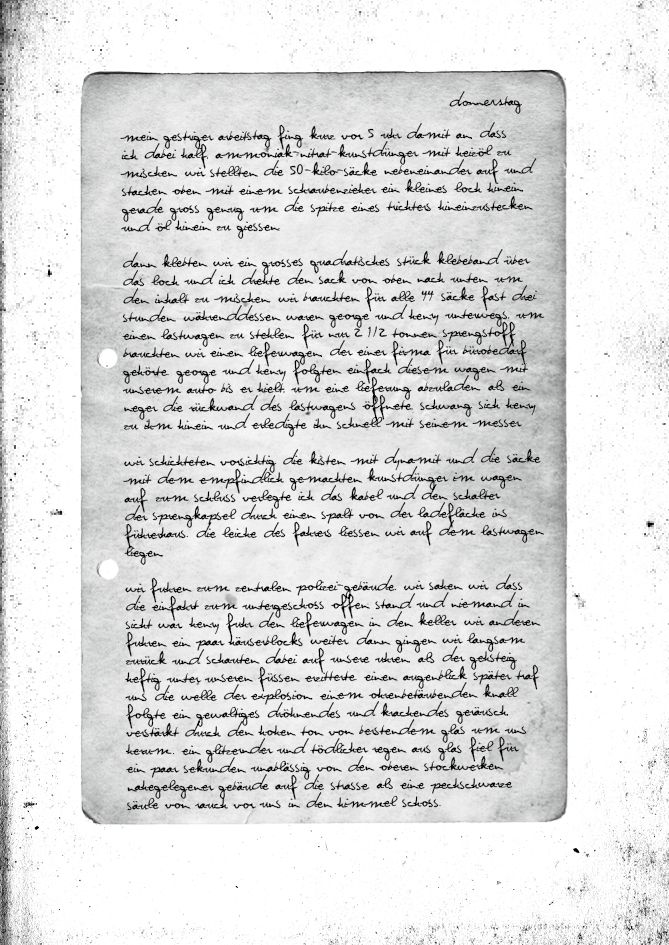 donnerstag
mein gestriger arbeitstag fing kurz vor 5 uhr damit an dass
ich dabei half. ammoniak-nitrat-kunstdünger mit heizöl zu
mischen wir stellten die 50-kilo-säcke nebeneinander auf und
stachen oben mit einem schraubenzieher ein kleines loch hinein
gerade gross genug um die spitze eines trichters hineinzustecken
und öl hinein zu giessen
dann klebten wir ein grosses quadratisches stück klebeband über
das loch und ich drehte den sack von oben nach unten um
den inhalt zu mischen wir brauchten für alle 44 säcke fast drei
stunden währenddessen waren george und henry unterwegs. um
einen lastwagen zu stehlen für nur 2 1/2 tonnen sprengstoff
brauchten wir einen lieferwagen der einer firma für bürobedarf
gehörte george und henry folgten einfach diesem wagen mit
unserem auto bis er hielt. um eine lieferung abzuladen als ein
neger die rückwand des lastwagens öffnete schwang sich henry
zu ihm hinein und erledigte ihn schnell mit seinem messer
wir schichteten vorsichtig die kisten mit dynamit und die säcke
mit dem empfindlich gemachten kunstdünger im wagen
auf zum schluss verlegte ich das kabel und den schalter
der sprengkapsel durch einen spalt von der ladefläche ins
führerhaus. die leiche des fahrers liessen wir auf dem lastwagen
liegen
wir fuhren zum zentralen polizei-gebäude. wir sahen wir dass
die einfahrt zum untergeschoss offen stand und niemand in
sicht war henry fuhr den lieferwagen in den keller wir anderen
fuhren ein paar häuserblocks weiter dann gingen wir langsam
zurück und schauten dabei auf unsere uhren als der gehsteig
heftig unter unseren füssen erzitterte einen augenblick später traf
uns die welle der explosion einem ohrenbetäubenden knall
folgte ein gewaltiges dröhnendes und krachendes geräusch.
verstärkt durch den hohen ton von berstendem glas um uns
herum. ein glitzernder und tödlicher regen aus glas fiel für
ein paar sekunden unablässig von den oberen stockwerken
nahegelegener gebäude auf die strasse als eine pechschwarze
säule von rauch vor uns in den himmel schoss.